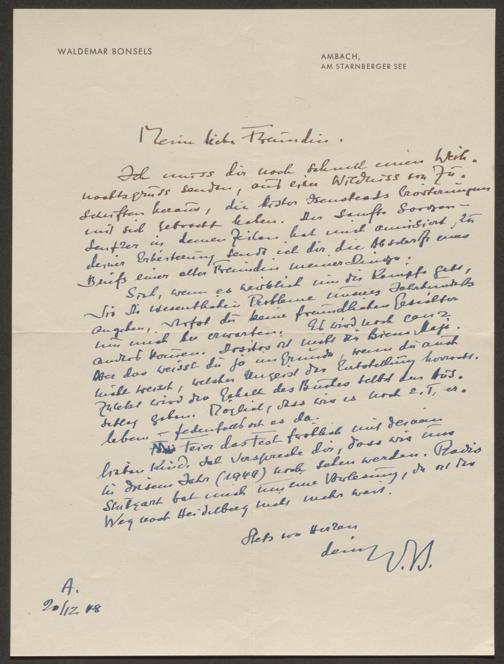 WALDEMAR BONSELS
AMBACH,
AM STARNBERGER SEE
Meine liebe Freundin.
Ich muss dir noch schnell einen Weih-
nachtsgruss senden, aus einer Wildniss von Zu-
schriften heraus, die
mit sich gebracht haben. Der Sanfte
Seufzer in deinen Zeilen hat mich amüsiert, zu
deiner Erheiterung sende ich dir die Abschrift eines
Briefs einer alten Freundin meiner Dinge.
Sieh, wenn es wirklich um die Kämpfe geht,
die die wesentlichen Probleme unseres Jahrhunderts
angehen, darfst du keine freundlichen Gesichter
um mich her erwarten. Es wird noch ganz
anders kommen. Dositos ist nicht die Biene Maja.
Aber das weisst du ja im Grunde, wenn du auch
nicht weisst, welcher Ungeist der Entstellung
Zuletzt wird der Gehalt des Buches selbst den Aus-
schlag geben. Möglich, dass wir es noch z. T. er-
leben – jedenfalls ist es da.
Feire das Fest fröhlich mit deinem
lieben Kind. Ich verspreche dir, dass wir uns
in diesem Jahr (1949) noch sehen werden. Radio
Stuttgart bat mich um eine Vorlesung, da ist der
Weg nach Heidelberg nicht mehr weit.
Stets von Herzen
dein W. B.
A.
20/12 48